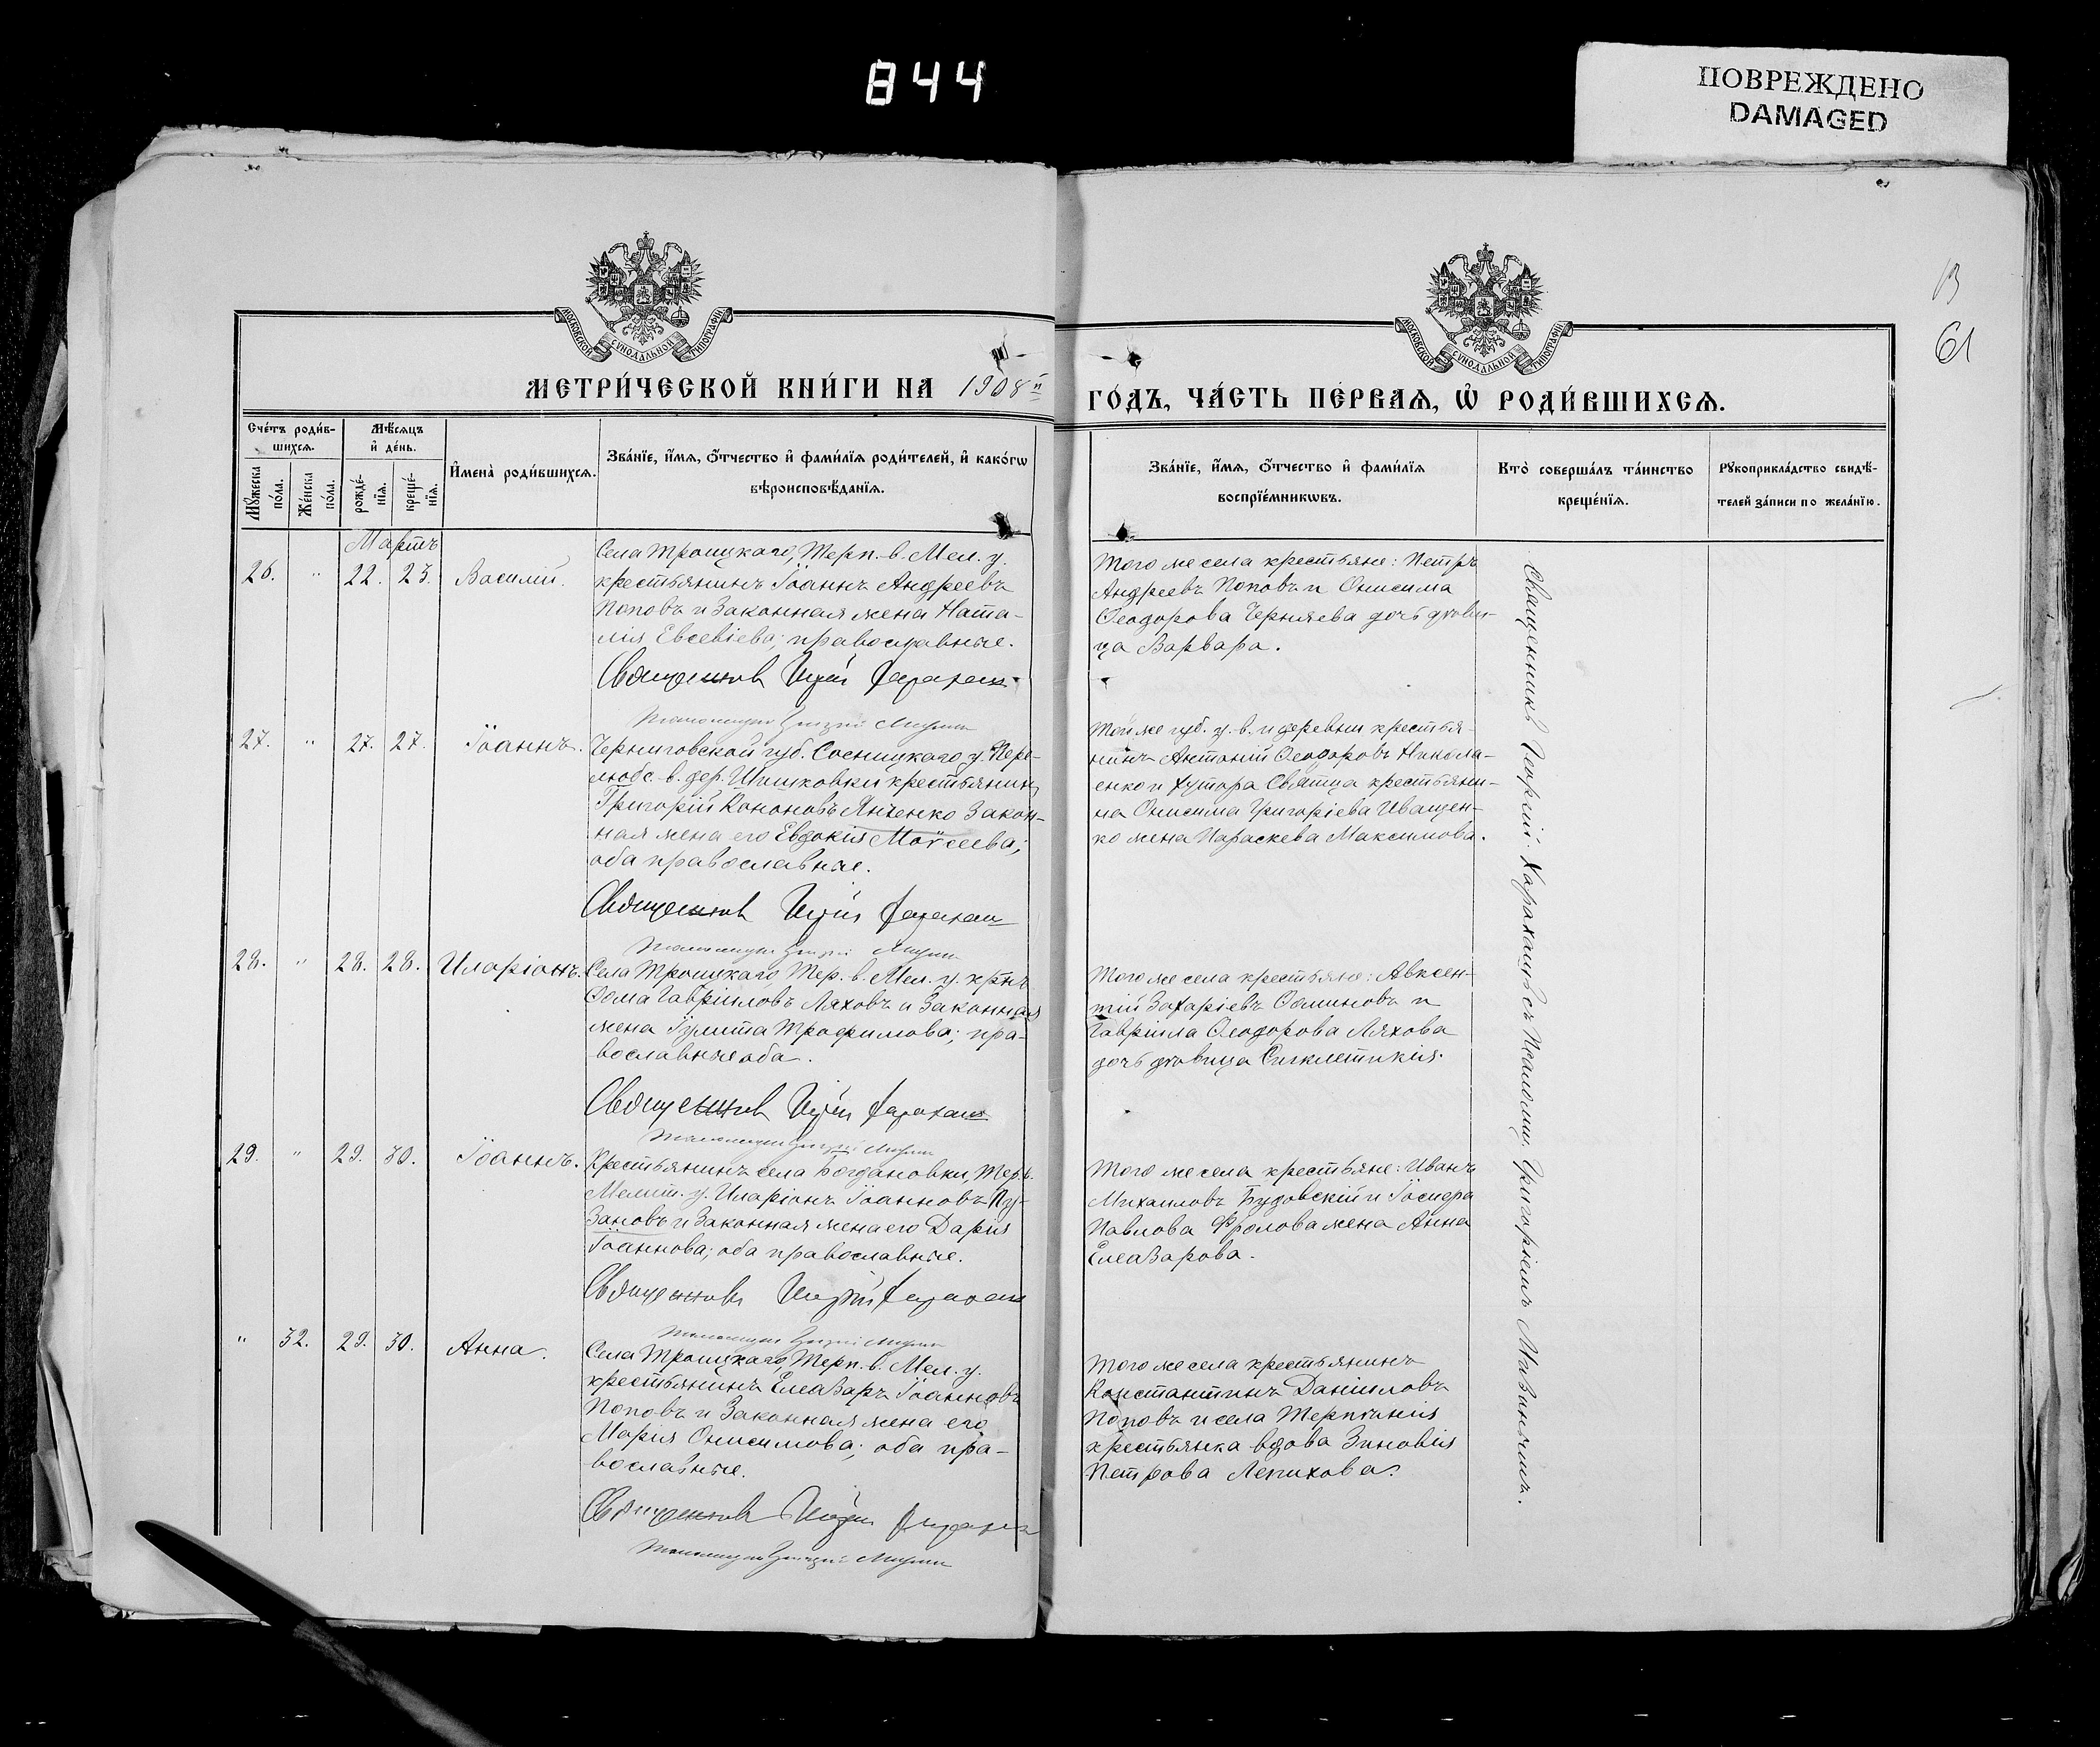 844
ПОВРЕЖДЕНО
DAMAGED
61
МОСКОВСКОЙ СУНОДАЛЬНОЙ ТИПОГРАФІИ
МОСКОВСКОЙ СУНОДАЛЬНОЙ ТИПОГРАФІИ
МЕТРИ́ЧЕСКОЙ КНИ́ГИ НА 1908й
ГО́ДЪ, ЧА́СТЬ ПЕ́РВАѦ, Ѡ҆ РОДИ́ВШИХСѦ.
Сче́тъ роди́в-
шихсѧ.
Мꙋ́жеска по́ла.
Же́нска по́ла.
Мѣ́сѧцъ
и҆ де́нь.
рожде́-
нїѧ.
креще́-
нїѧ.
И҆мена̀ роди́вшихсѧ.
Зва́нїе, и҆́мѧ, ѻ҆́тчество и҆ фами́лїѧ роди́телей, и҆ како́гѡ
вѣроисповѣ́данїѧ.
Зва́нїе, и҆́мѧ, ѻ҆́тчество и҆ фами́лїѧ
воспрїе́мникѡвъ.
Кто̀ соверша́лъ та́инство
креще́нїѧ.
Рꙋкоприкла́дство свидѣ́-
телей за́писи по жела́нїю.
Мартъ
26. " 22. 23. Василій.
Села Троицкаго, Терп. в. Мел. у.
крестьянинъ Іоаннъ Андреевъ
Поповъ и законная жена Ната-
лія Евсевіева; православные.
Священникъ
Того же села крестьяне: Петръ
Андреевъ Поповъ и Онисима
Ѳеодорова Черняева дочь дѣви-
ца Варвара.
27. " 27. 27. Іоаннъ.
Черниговской губ. Сосницкаго у. Пере-
любс. в. дер. Шишковки крестьянинъ
Григорій Кононовъ Янченко закон-
ная жена его Евдокія Моѵсеева;
оба православные.
Священникъ
Той же губ. у. в. и деревни крестья-
нинъ Антоній Ѳеодоровъ Никола-
енко и хутора Святца крестьяни-
на Онисима Григоріева Иващен-
ко жена Параскева Максимова.
28. " 28. 28. Иларіонъ.
Села Троицкаго, Тер. в. Мел. у. кр-нъ
Ѳома Гавріиловъ Ляховъ и законная
жена Іулитта Трофимова; пра-
вославные оба.
Священникъ
Того же села крестьяне: Авксен-
тій Захаріевъ Ѳоминовъ и
Гавріила Ѳеодорова Ляхова
дочь дѣвица Синклитикія.
29. " 29. 30. Іоаннъ.
Крестьянинъ села Богдановки, Тер. в.
Мелит. у. Иларіонъ Іоанновъ Пу-
зановъ и законная жена его Дарія
Іоаннова; оба православные.
Священникъ
Того же села крестьяне: Иванъ
Михаиловъ Будовскій и Іосифа
Павлова Фролова жена Анна
Елеазарова.
" 32. 29. 30. Анна.
Села Троицкаго, Терп. в. Мел. у.
крестьянинъ Елеазаръ Іоанновъ
Поповъ и законная жена его
Марія Онисимова; оба пра-
вославные.
Священникъ
Того же села крестьянинъ
Константинъ Даніиловъ
Поповъ и села Терпѣнія
крестьянка вдова Зиновія
Петрова Лепихова.
Священникъ Георгій Харахашъ съ Псаломщ. Григоріемъ